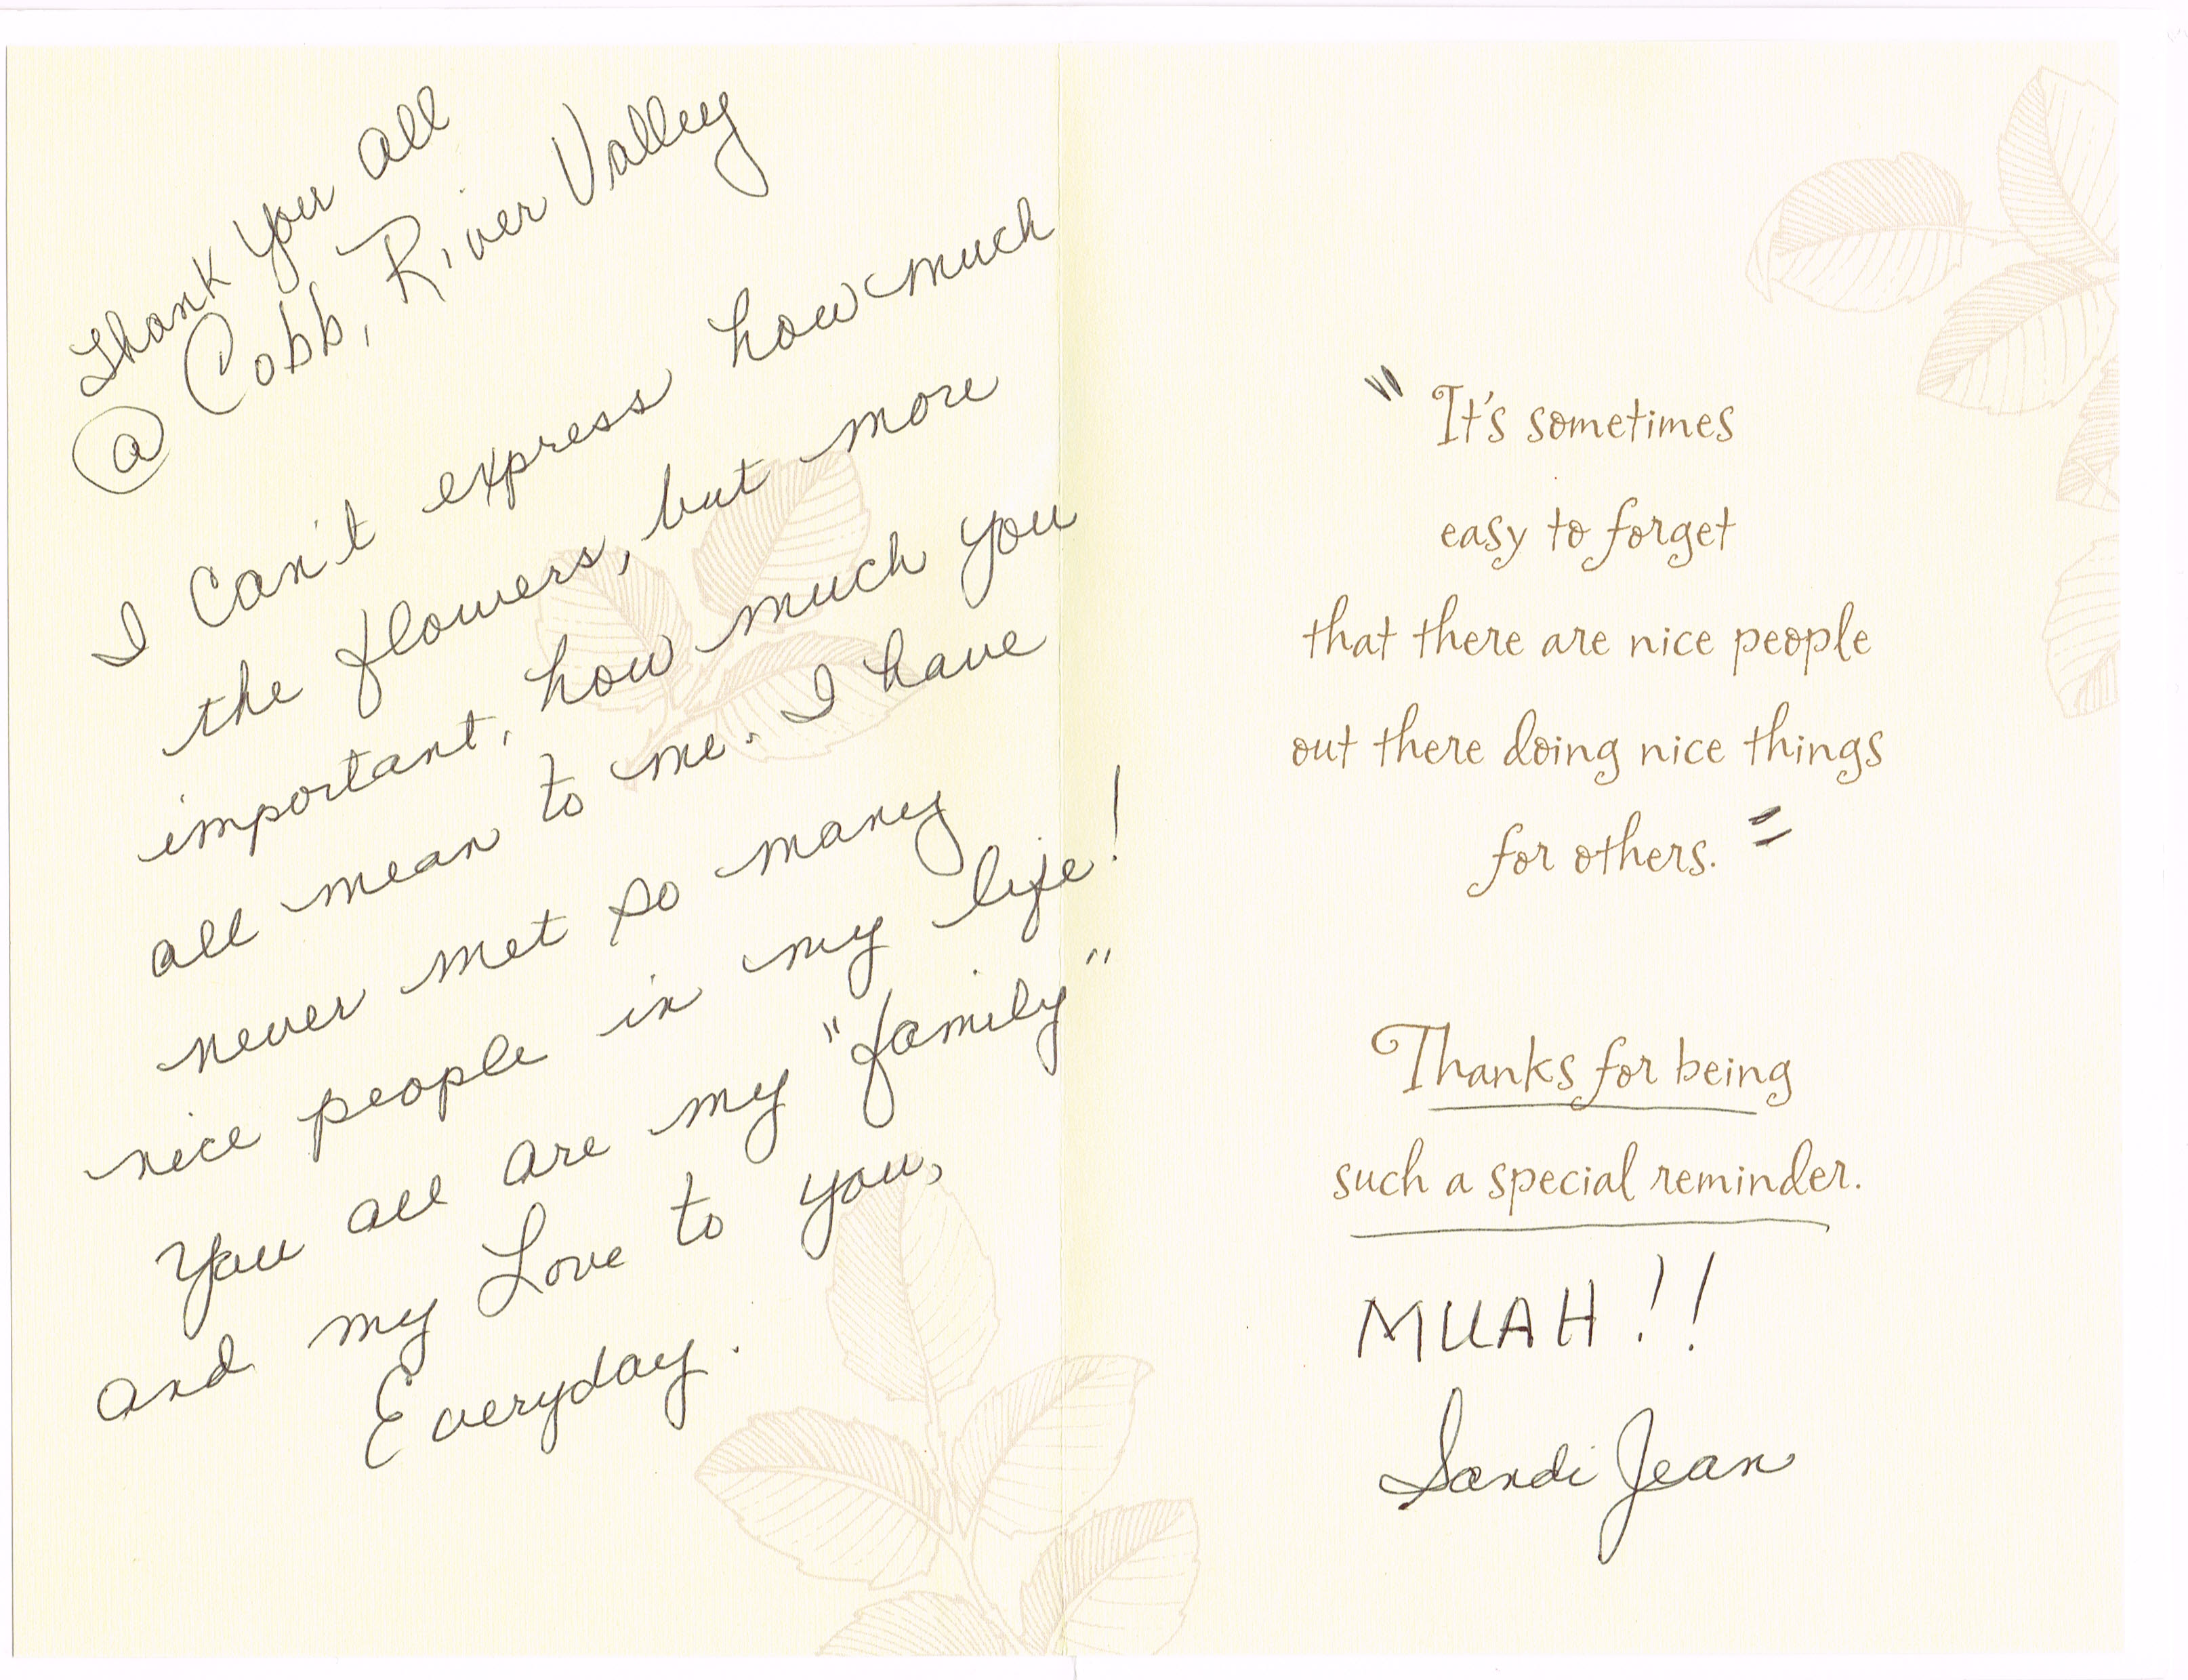 Thank you all
@ Cobb, River Valley
I can't express how much
the flowers, but more
important, how much you
all mean to me. I have
never met so many
nice people in my life!
You all are my "family"
and my Love to you,
Everyday.
" It's sometimes
easy to forget
that there are nice people
out there doing nice things
for others. "
Thanks for being
such a special reminder.
MUAH!!
Sandi Jean